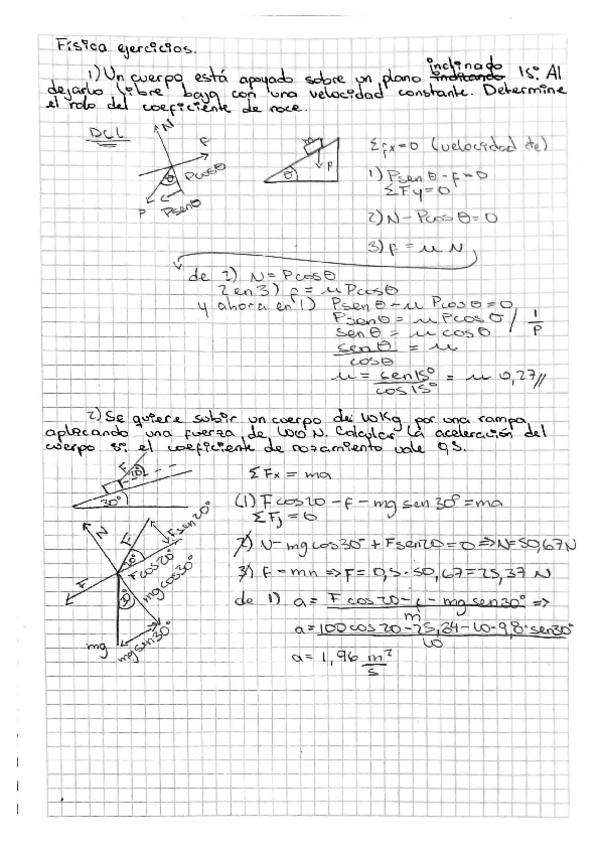 Física ejercicios.
1) Un cuerpo está apoyado sobre un plano inclinado 15°. Al
dejarlo libre baja con una velocidad constante. Determine
el rolo del coeficiente de roce.
DCL
N
f
Pcosθ
θ
P
Psenθ
m
P
θ
Σfx=0 (velocidad de)
1) Psen θ - f = 0
ΣFy=0
2) N - Pcos θ = 0
3) f = μ N
de 2) N = Pcosθ
2 en 3) f = μ Pcosθ
y ahora en 1) Psen θ - μ Pcos θ = 0
Psen θ = μ Pcos θ / 1/P
sen θ = μ cos θ
sen θ / cos θ = μ
μ = sen 15° / cos 15° = μ 0,27//
2) Se quiere subir un cuerpo de 10Kg por una rampa,
aplicando una fuerza de 100 N. Calcular la aceleración del
cuerpo si el coeficiente de rozamiento vale 0,5.
F
20°
30°
ΣFx = ma
(1) F cos 20 - f - mg sen 30° = ma
ΣFy = 0
2) N - mg cos 30° + F sen 20 = 0 ⇒ N = 50,67N
3) f = mn ⇒ F = 0,5 · 50,67 = 25,37 N
de 1) a = F cos 20 - f - mg sen 30° / m ⇒
a = 100 cos 20 - 25,34 - 10 · 9,8 · sen 30° / 10
a = 1,96 m² / s
N
F
F sen 20°
20°
F cos 20°
mg cos 30°
F
30°
mg
mg sen 30°